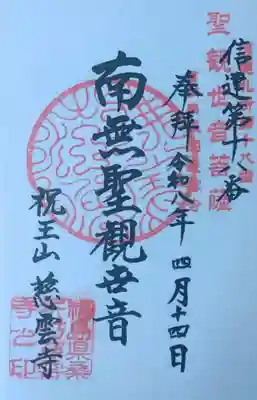 聖観世音菩薩
信達第十番
奉拝 令和八年 四月十四日
南無聖觀世音
祝王山 慈雲寺